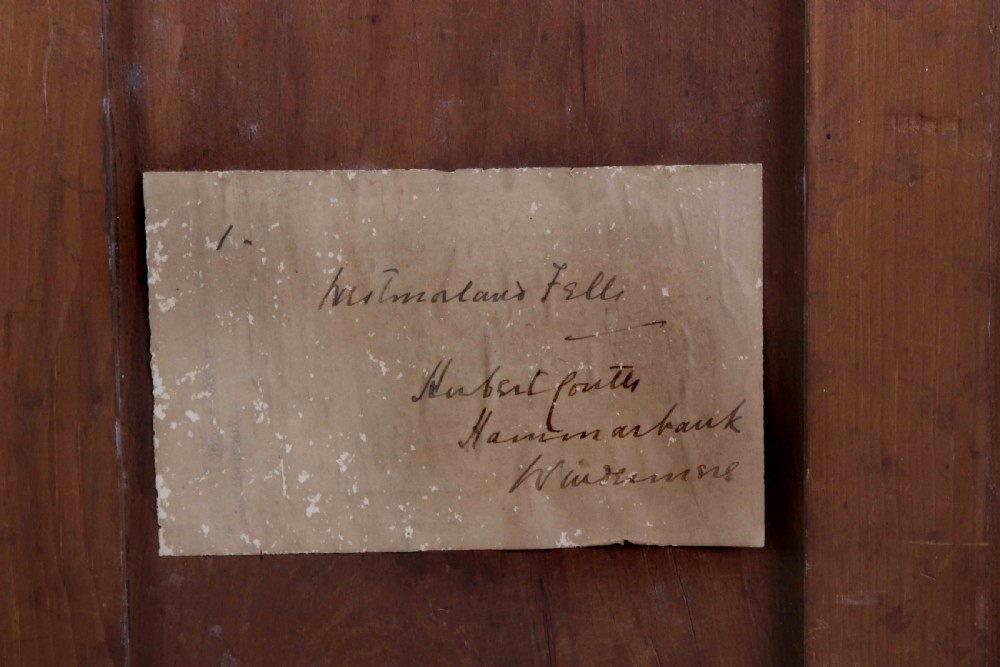 1.
Westmorland Fells
Herbert Coutts
Hammarbank
Windermere